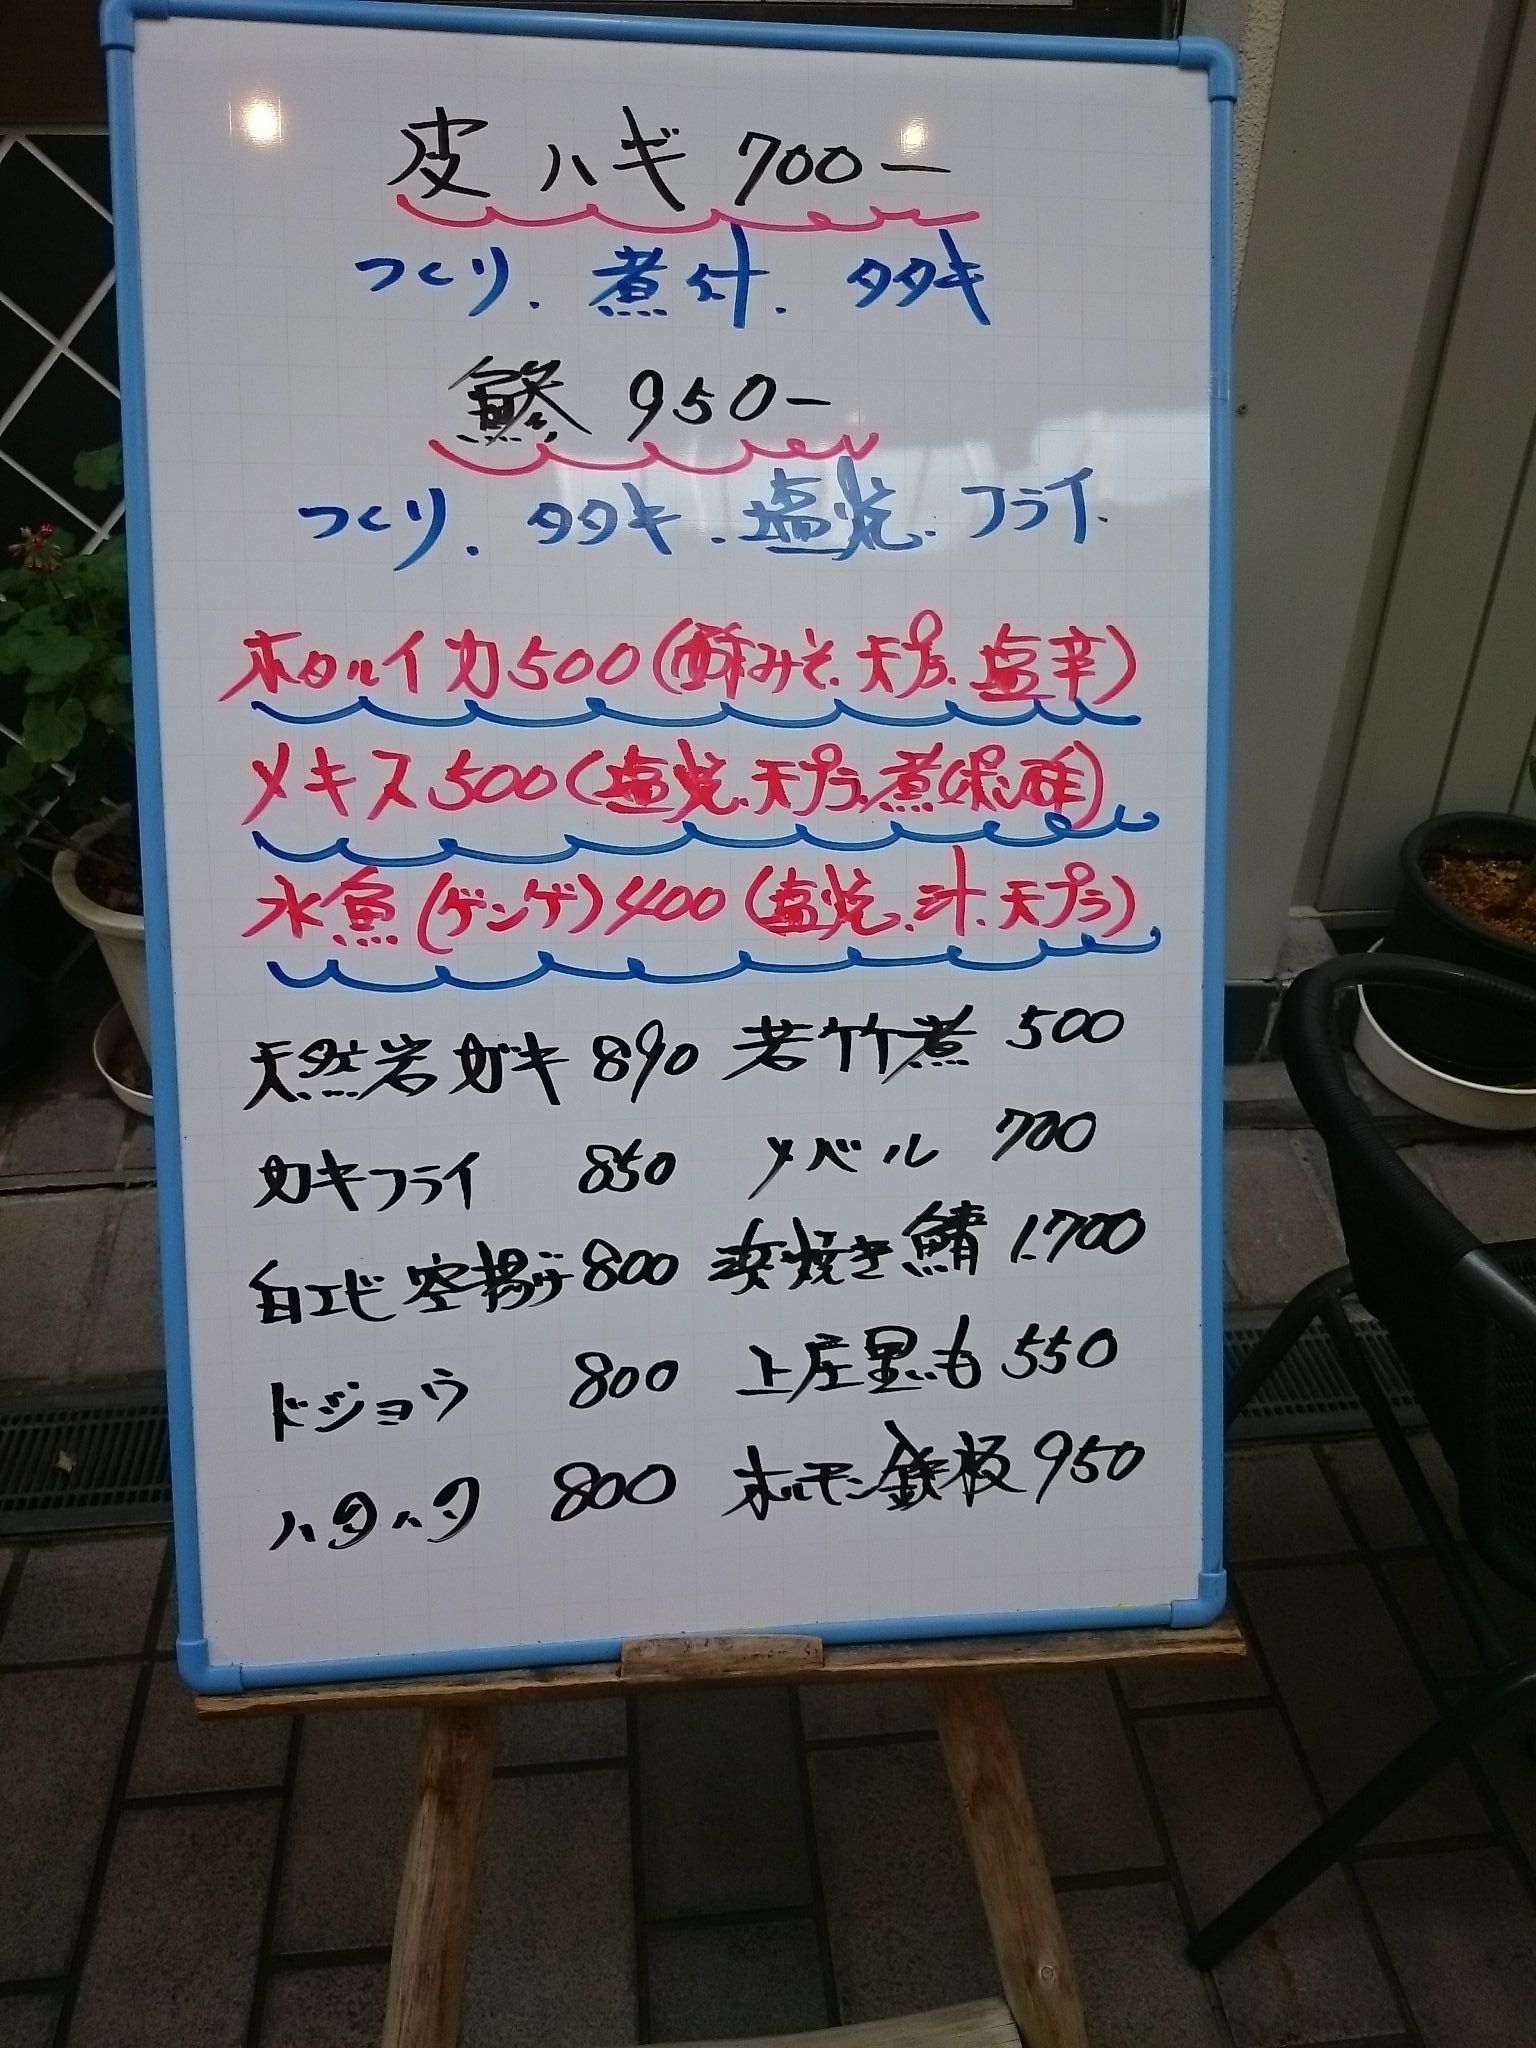 皮ハギ 700ー
つくり.煮.汁.タタキ
鯵 950ー
つくり.タタキ.塩焼.フライ.
ホタルイカ500(酢みそ.天プラ.塩辛)
メキス500(塩焼.天プラ.煮.ポン酢)
水魚(ゲンゲ)400(塩焼.汁.天プラ)
天然岩ガキ 890 若竹煮 500
カキフライ 850 メバル 700
白エビ空揚げ 800 浜焼き鯖 1.700
ドジョウ 800 上庄里いも 550
ハタハタ 800 ホルモン鉄板 950